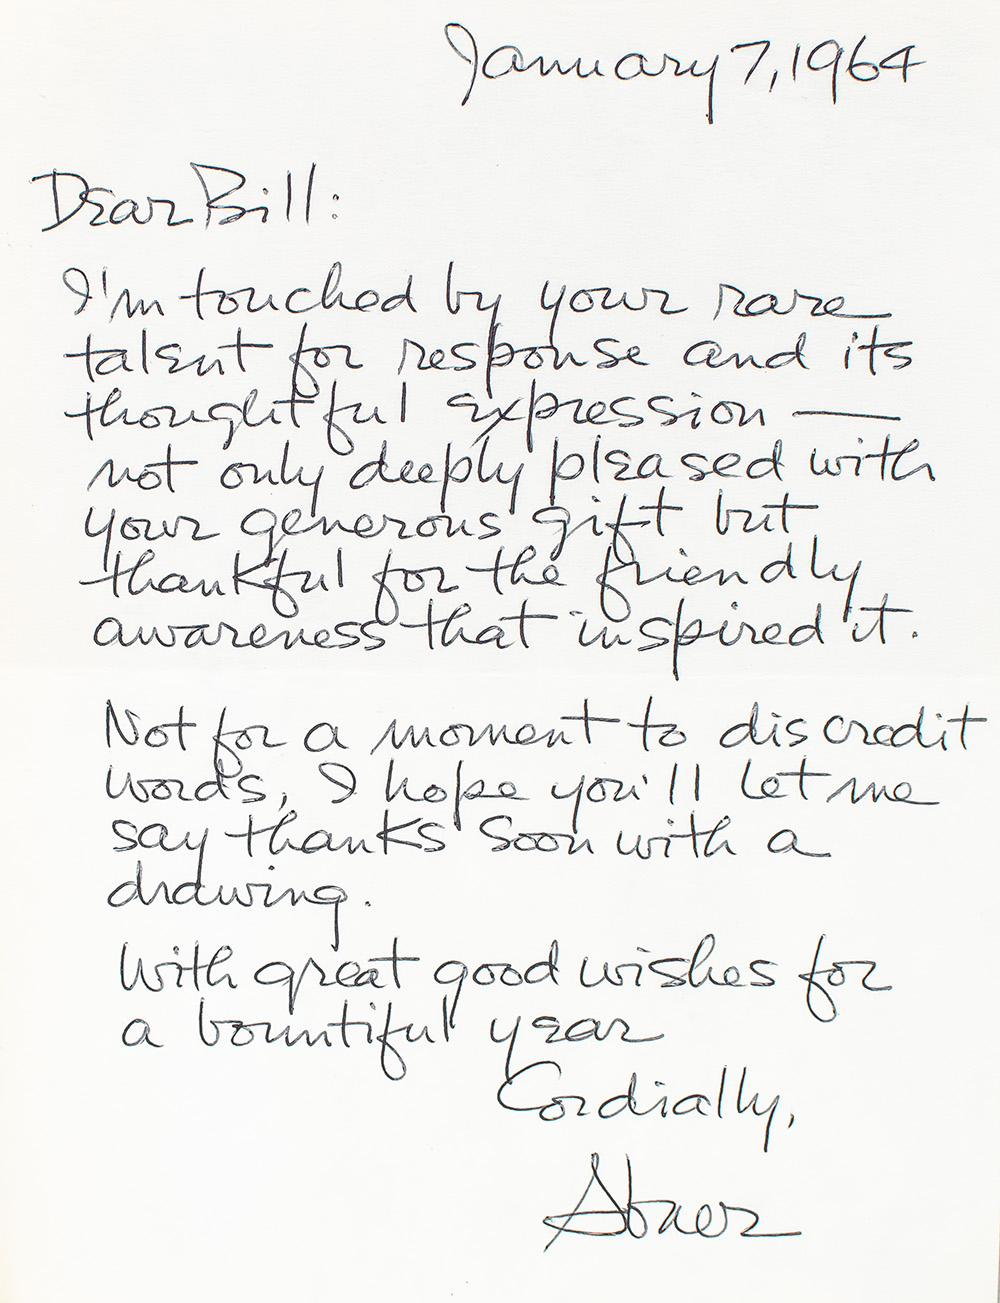 January 7, 1964
Dear Bill:
I'm touched by your rare
talent for response and its
thoughtful expression —
not only deeply pleased with
your generous gift but
thankful for the friendly
awareness that inspired it.
Not for a moment to discredit
words, I hope you'll let me
say thanks soon with a
drawing.
With great good wishes for
a bountiful year
Cordially,
Abner